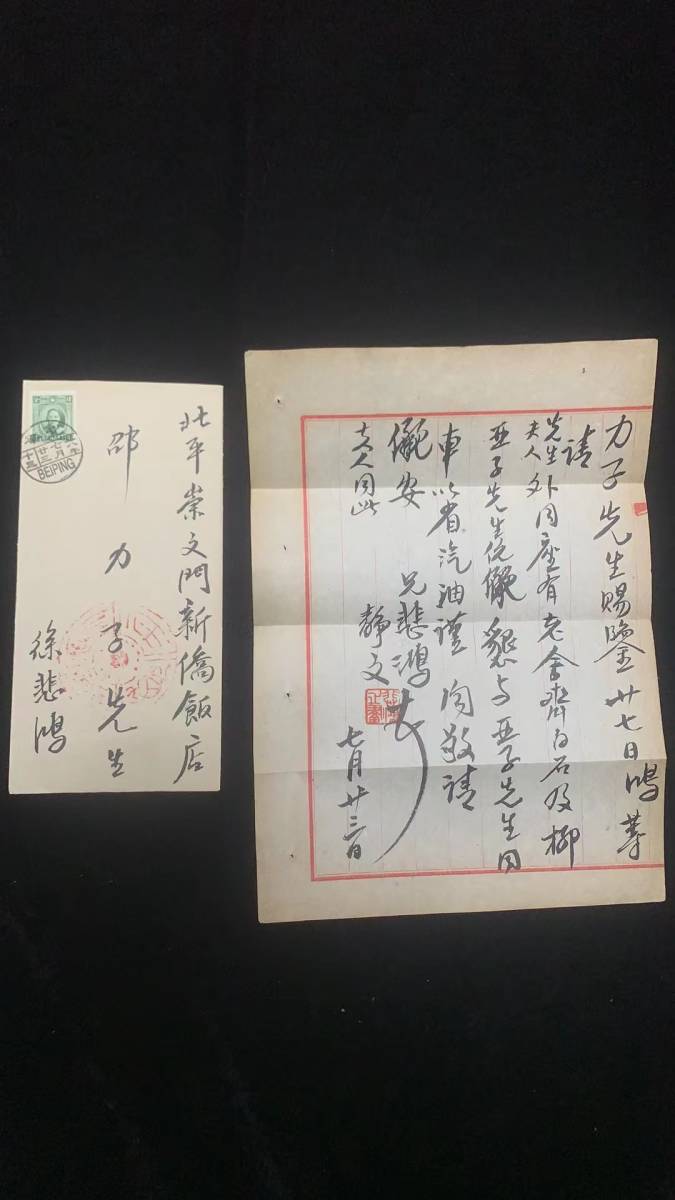 北平崇文門新僑飯店
邵力子先生
徐悲鴻
BEIPING
力子先生賜鑒廿七日鴻等
請
先生
夫人外同座有老舍齊白石及柳
亞子先生伉儷懇与亞子先生同
車以省汽油謹白敬請
儷安 兄悲鴻
靜文
七月廿三日
夫人同此